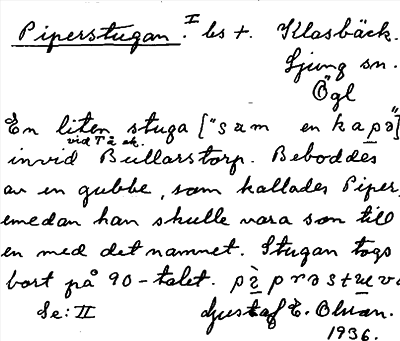 Piperstugan. I bs +. Klasbäck.
Ljung sn.
Ögl
En liten stuga ["sam en kapə]
vid Tå ek.
invid Bullarstorp. Beboddes
av en gubbe, som kallades Piper,
emedan han skulle vara son till
en med det namnet. Stugan togs
bort på 90-talet.
Se: II Gustaf E. Olson.
1936.